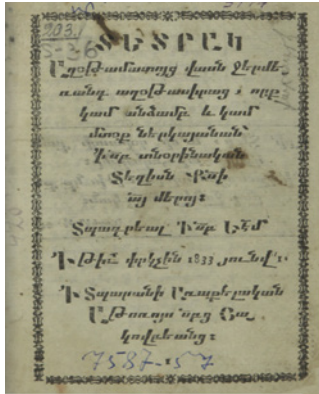 203.
ՏԵՏՐԱԿ
Աղօթամատոյց վասն ջերմե-
ռանդ աղօթասիրաց ; որք
կամ անձամբ և կամ
մտօք ներկայանան՝
Տնօրինական
Տեղեան
մերոյ։
Տպագրեալ Եէմ
փրկչին 1833 յունվ՟ 1։
Ի Տպարանի Առաքելական
Աթոռոյ սրց
կովբեանց։
7587-57